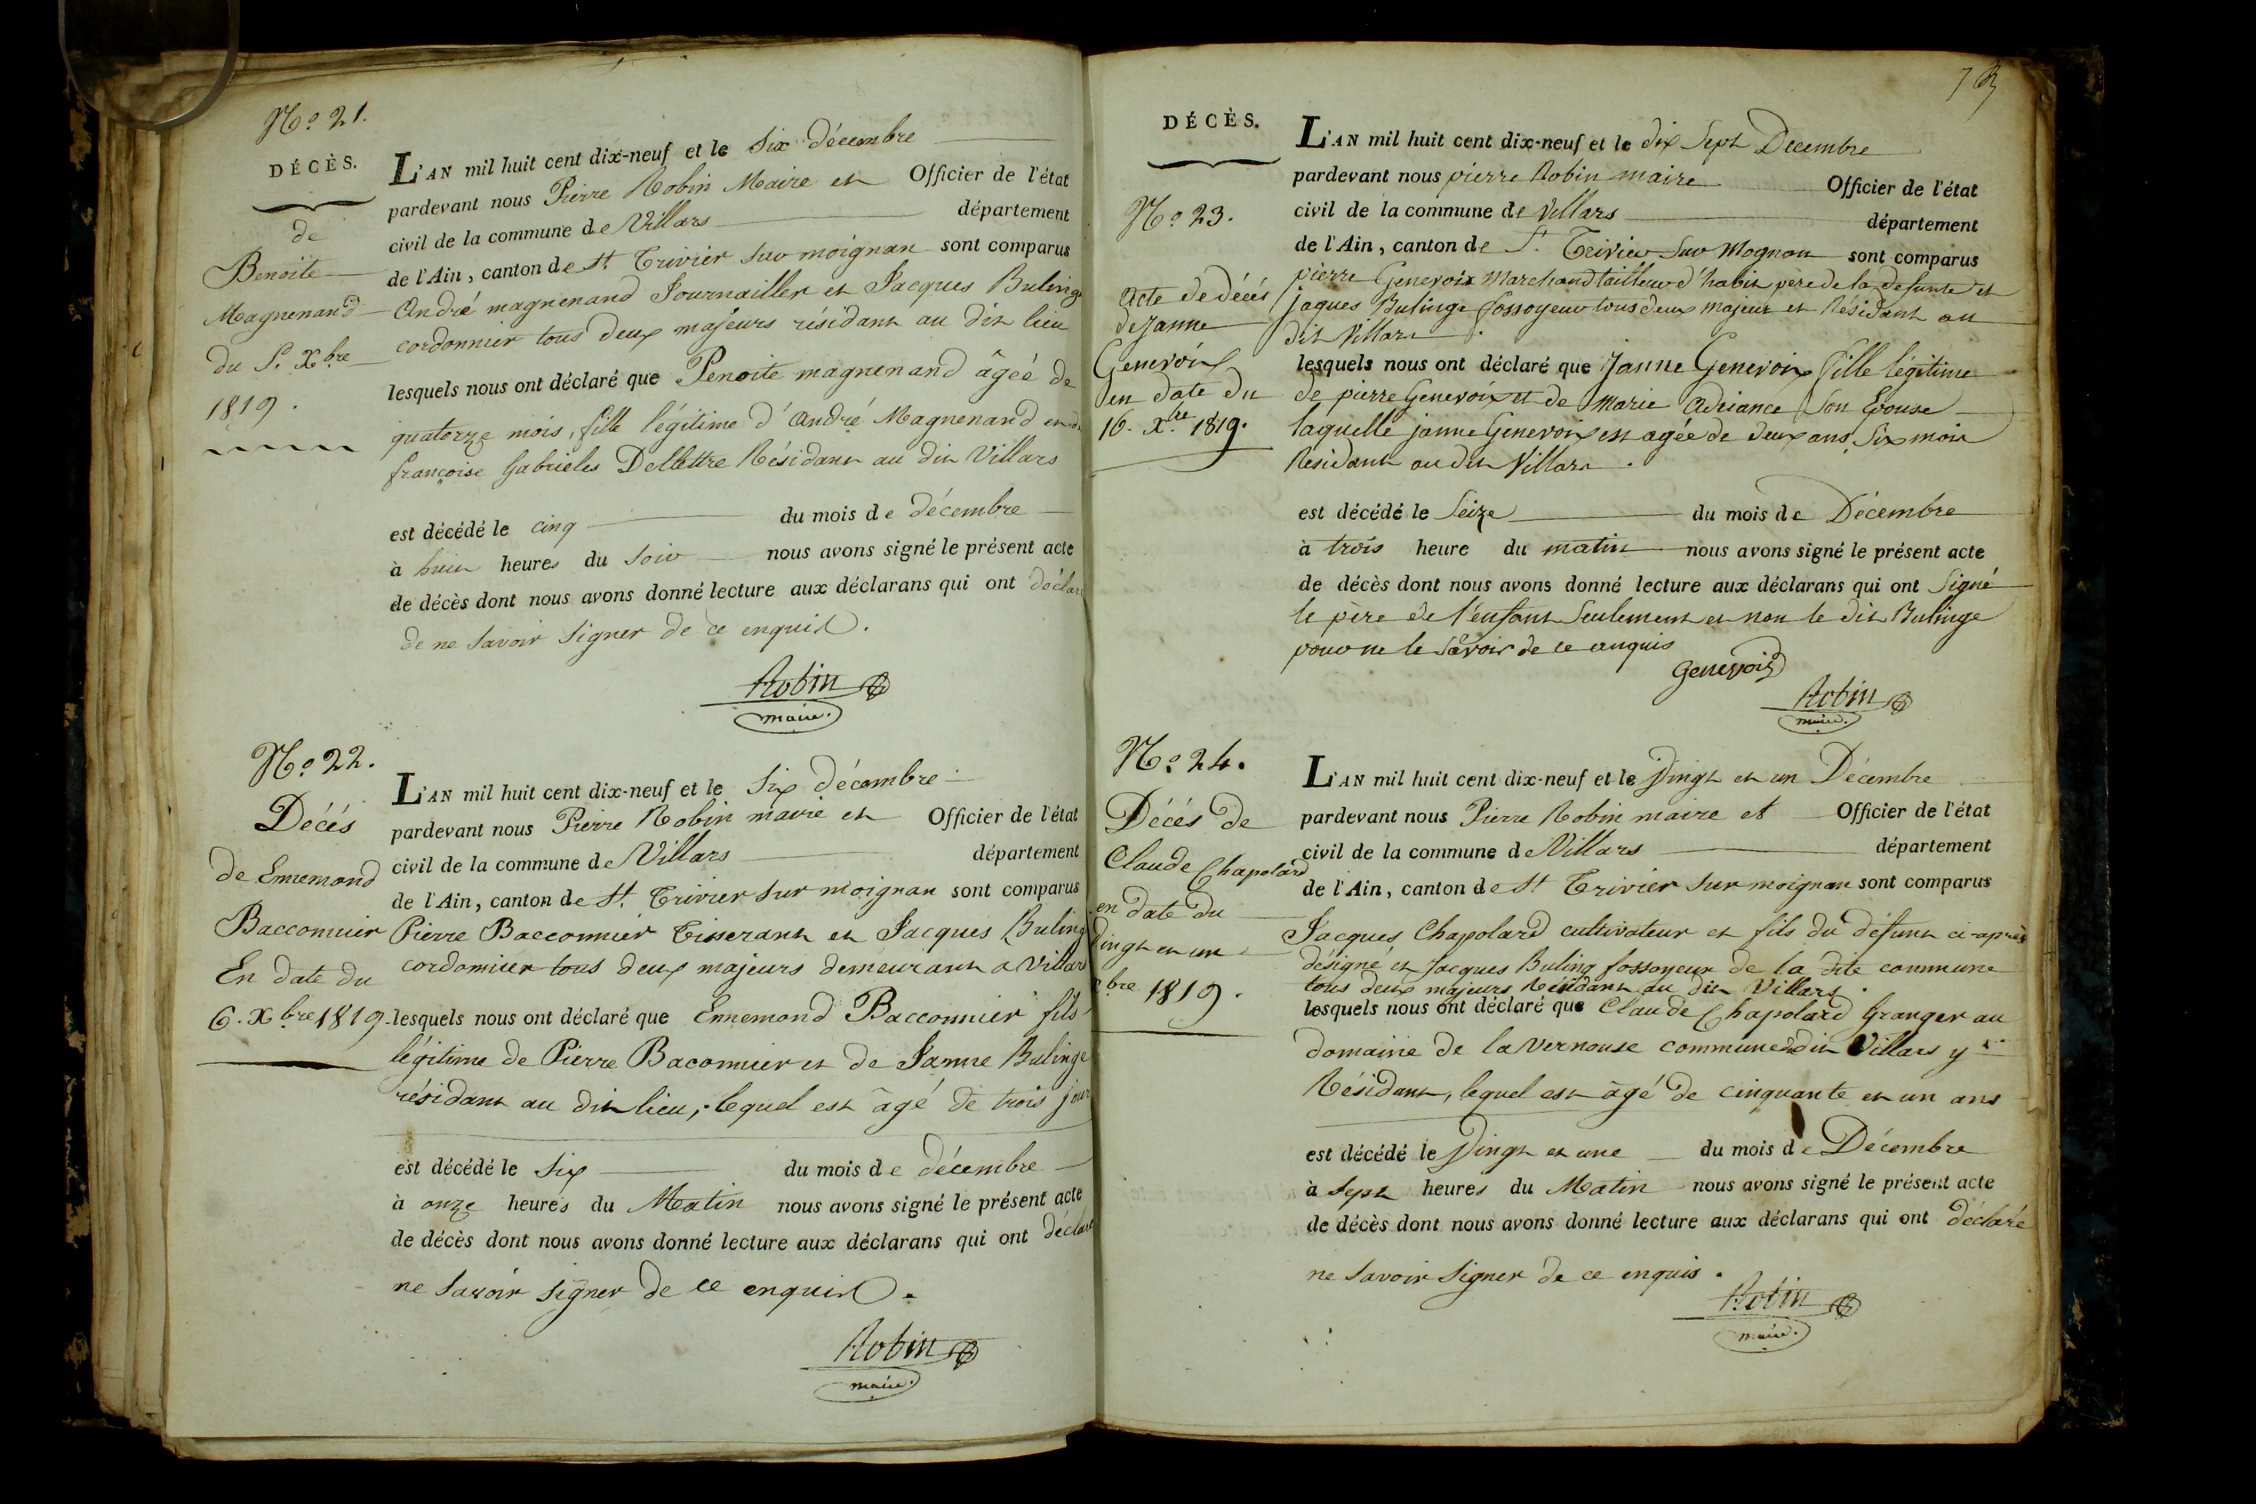 N.o 21.
DÉCÈS.
de
Benoite
Magnenand
du 5. Xbre
1819.
L'AN mil huit cent dix-neuf et le Six décembre
pardevant nous Pierre Robin Maire et Officier de l'état
civil de la commune de Villars département
de l'Ain, canton de St. Trivier sur moignan sont comparus
André magnenand Journaillier et Jacques Bulinge
cordonnier tous deux majeurs résidant au dit lieu
lesquels nous ont déclaré que Benoite magnenand âgéé de
quatorze mois, fille légitime d'André Magnenand et de
françoise Gabrieles Dellettre Résidant au dit Villars
est décédé le cinq du mois de décembre
à huit heures du soir nous avons signé le présent acte
de décès dont nous avons donné lecture aux déclarans qui ont déclaré
de ne savoir signer de ce enquis.
Robin
maire.
N.o 22.
Décés
de Ennemond
Bacconnier
En date du
6. Xbre 1819.
L'AN mil huit cent dix-neuf et le Six décembre
pardevant nous Pierre Robin maire et Officier de l'état
civil de la commune de Villars département
de l'Ain, canton de St. Trivier sur moignan sont comparus
Pierre Bacconnier Tisserant et Jacques Buling
cordonnier tous deux majeurs demeurant a Villars
lesquels nous ont déclaré que Ennemond Bacconnier fils
légitime de Pierre Baconnier et de Janne Bulinge
résidant au dit lieu, lequel est âgé de trois jour
est décédé le Six du mois de décembre
à onze heures du Matin nous avons signé le présent acte
de décès dont nous avons donné lecture aux déclarans qui ont déclaré
ne savoir signer de ce enquis.
Robin
maire.
DÉCÈS.
N.o 23.
Acte de décés
de Janne
Genevoix
en date du
16. Xbre 1819.
L'AN mil huit cent dix-neuf et le dix Sept Decembre
pardevant nous pierre Robin maire Officier de l'état
civil de la commune de Villars département
de l'Ain, canton de St Trivier Sur Mognon sont comparus
pierre Genevoix Marchand tailleur d'habit père de la defunte et
jaques Bulinge fossoyeur tous deux majeur et Résidant au
dit Villars.
lesquels nous ont déclaré que Janne Genevoix fille légitime
de pierre Genevoix et de Marie Adriance Son Epouse
laquelle janne Genevoix est agée de deux ans Six mois
Residant au dit Villars.
est décédé le Seize du mois de Décembre
à trois heure du matin nous avons signé le présent acte
de décès dont nous avons donné lecture aux déclarans qui ont Signé
le père de l'enfant Seulement et non le dit Bulinge
pour ne le Savoir de ce enquis
Genevois
Robin
maire.
N.o 24.
Décés de
Claude Chapolard
en date du
Vingt et un
Xbre 1819.
L'AN mil huit cent dix-neuf et le Vingt et un Décembre
pardevant nous Pierre Robin maire et Officier de l'état
civil de la commune de Villars département
de l'Ain, canton de St Trivier sur moignan sont comparus
Jacques Chapolard cultivateur et fils du défunt ci-après
désigné et Jacques Buling fossoyeur de la dite commune
tous deux majeurs Résidant au dit Villars.
lesquels nous ont déclaré que Claude Chapolard Granger au
domaine de la Vernouse commune dudit Villars y
Résidant, lequel est âgé de cinquante et un ans
est décédé le Vingt et une du mois de Décembre
à Sept heures du Matin nous avons signé le présent acte
de décès dont nous avons donné lecture aux déclarans qui ont déclaré
ne savoir signer de ce enquis.
Robin
maire.